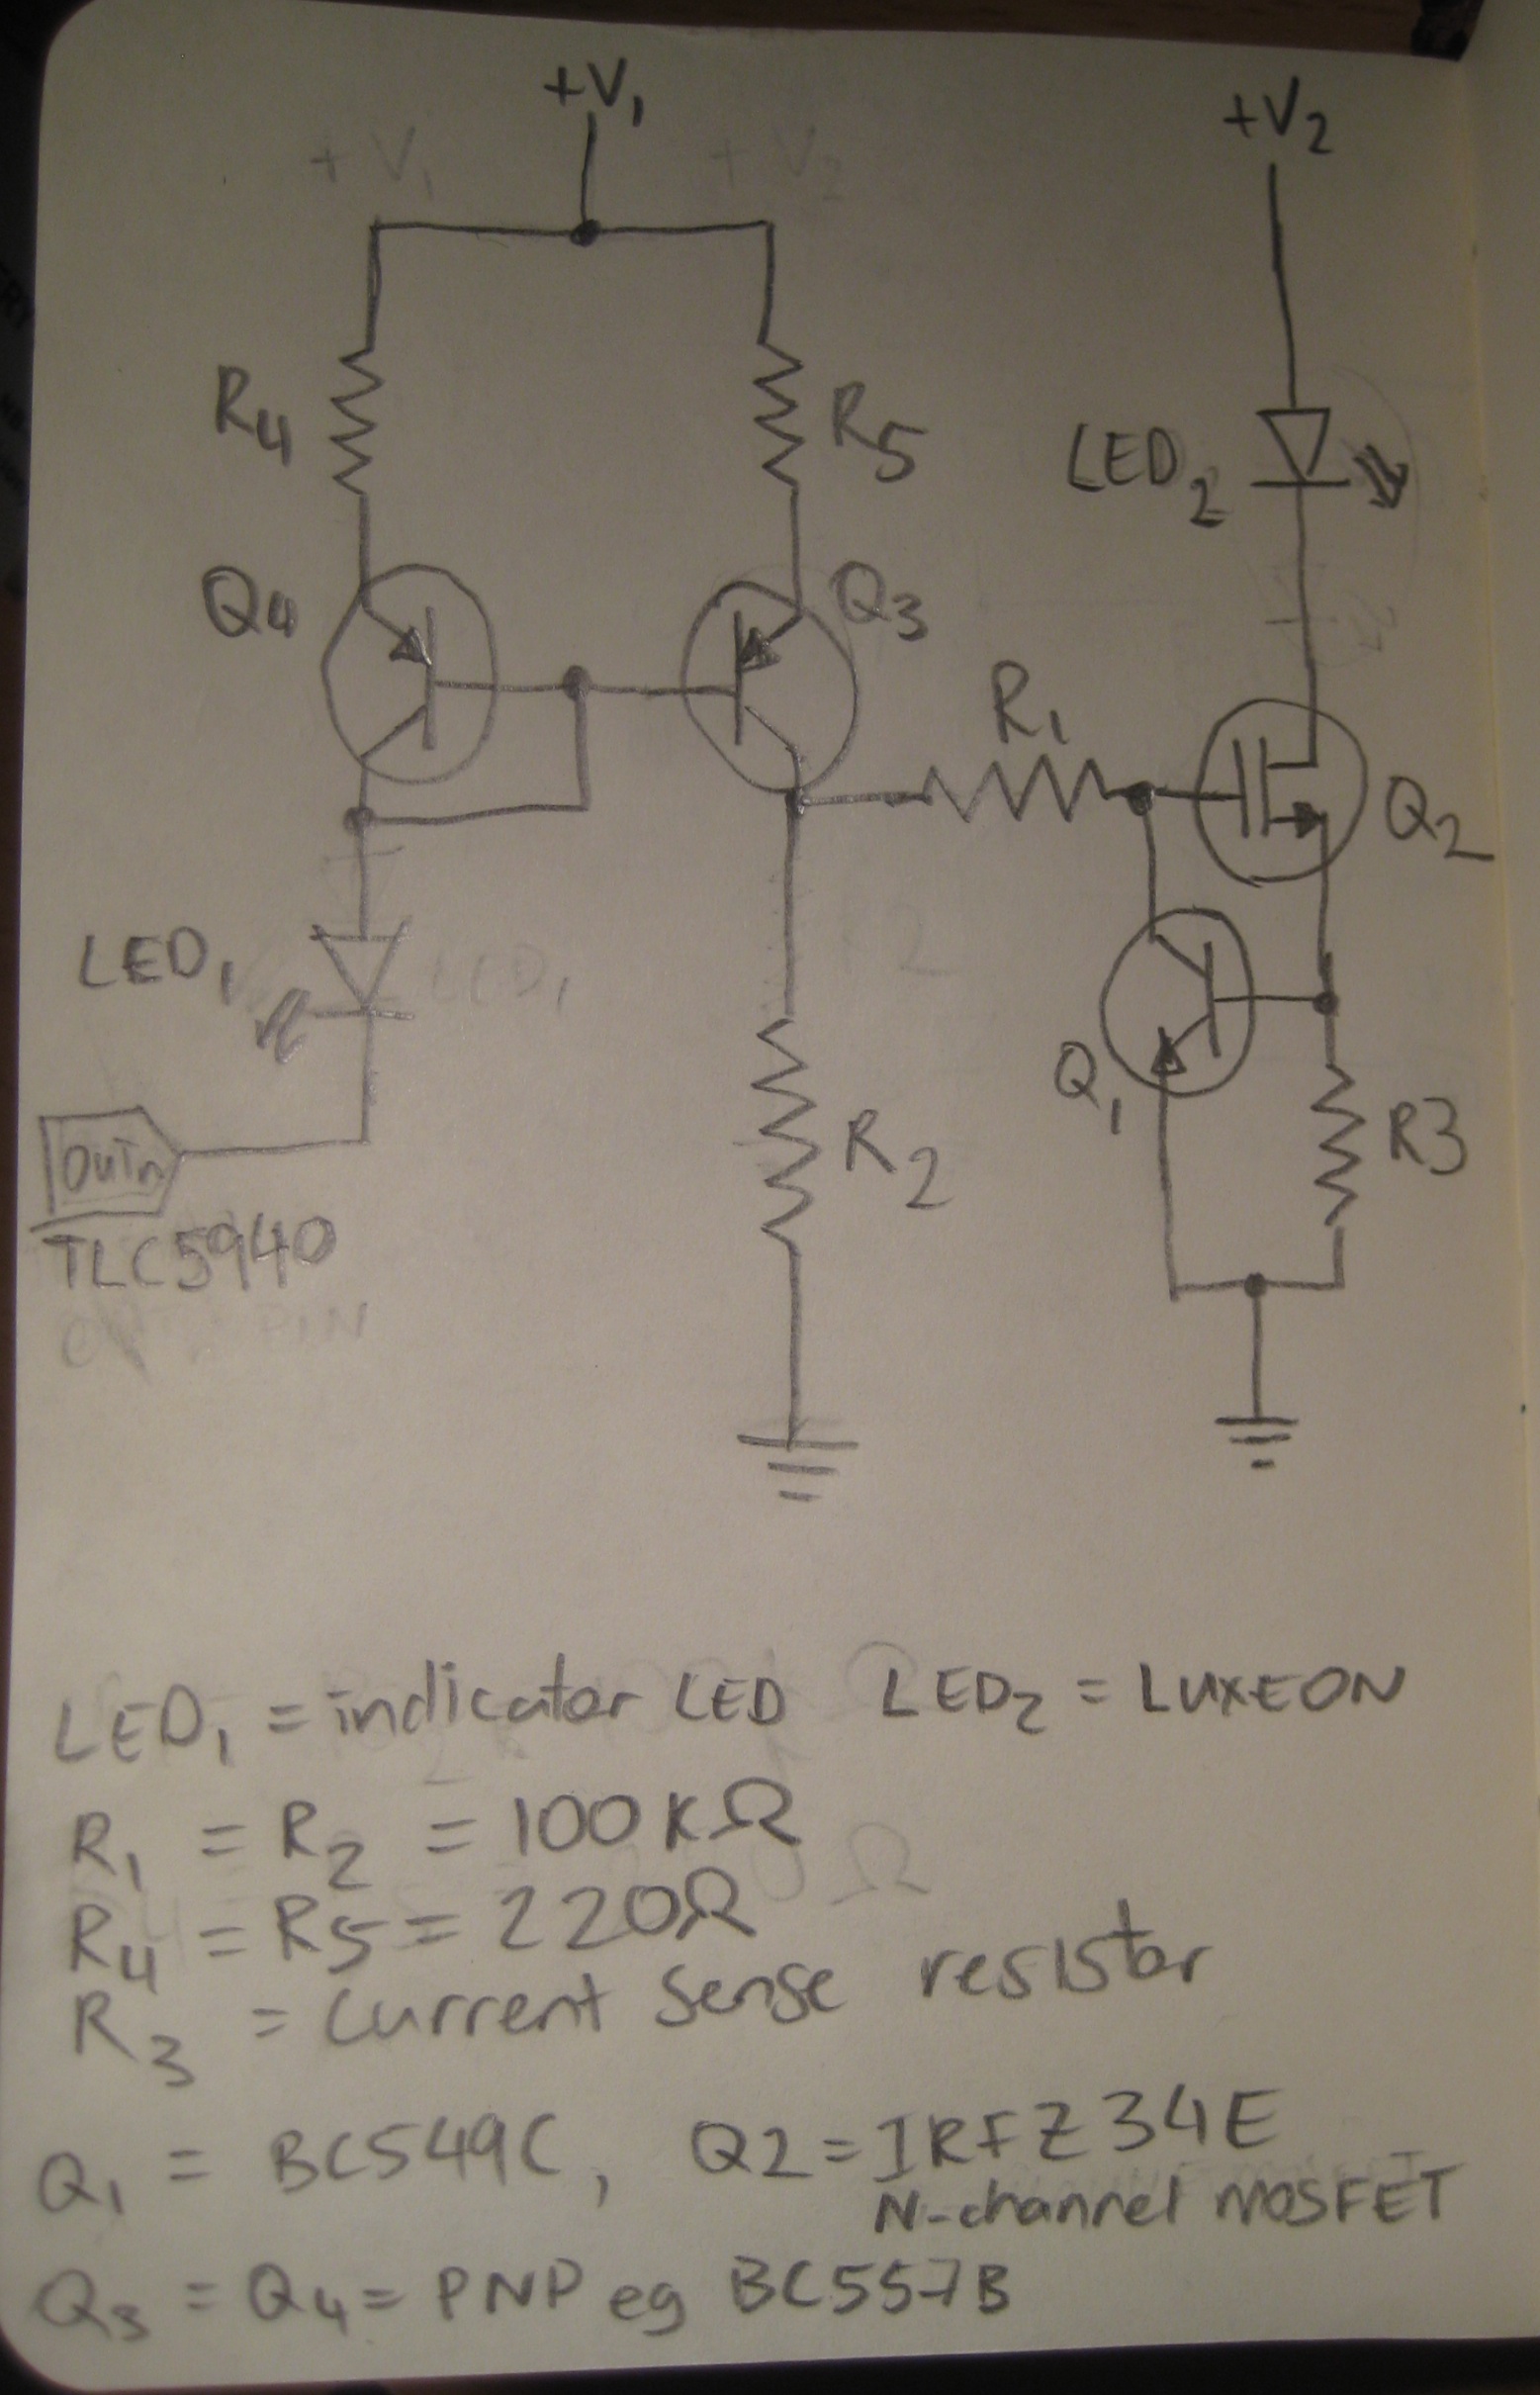 +V₁
+V₂
+V₁
+V₂
R₄
R₅
LED₂
Q₄
Q₃
R₁
Q₂
LED₁
LED₁
Q₁
R3
R₂
OUTn
TLC5940
PIN
LED₁ = indicator LED LED₂ = LUXEON
R₁ = R₂ = 100KΩ
R₄ = R₅ = 220Ω
R₃ = Current Sense resistor
Q₁ = BC549C, Q2 = IRFZ34E
N-channel MOSFET
Q₃ = Q₄ = PNP eg BC557B